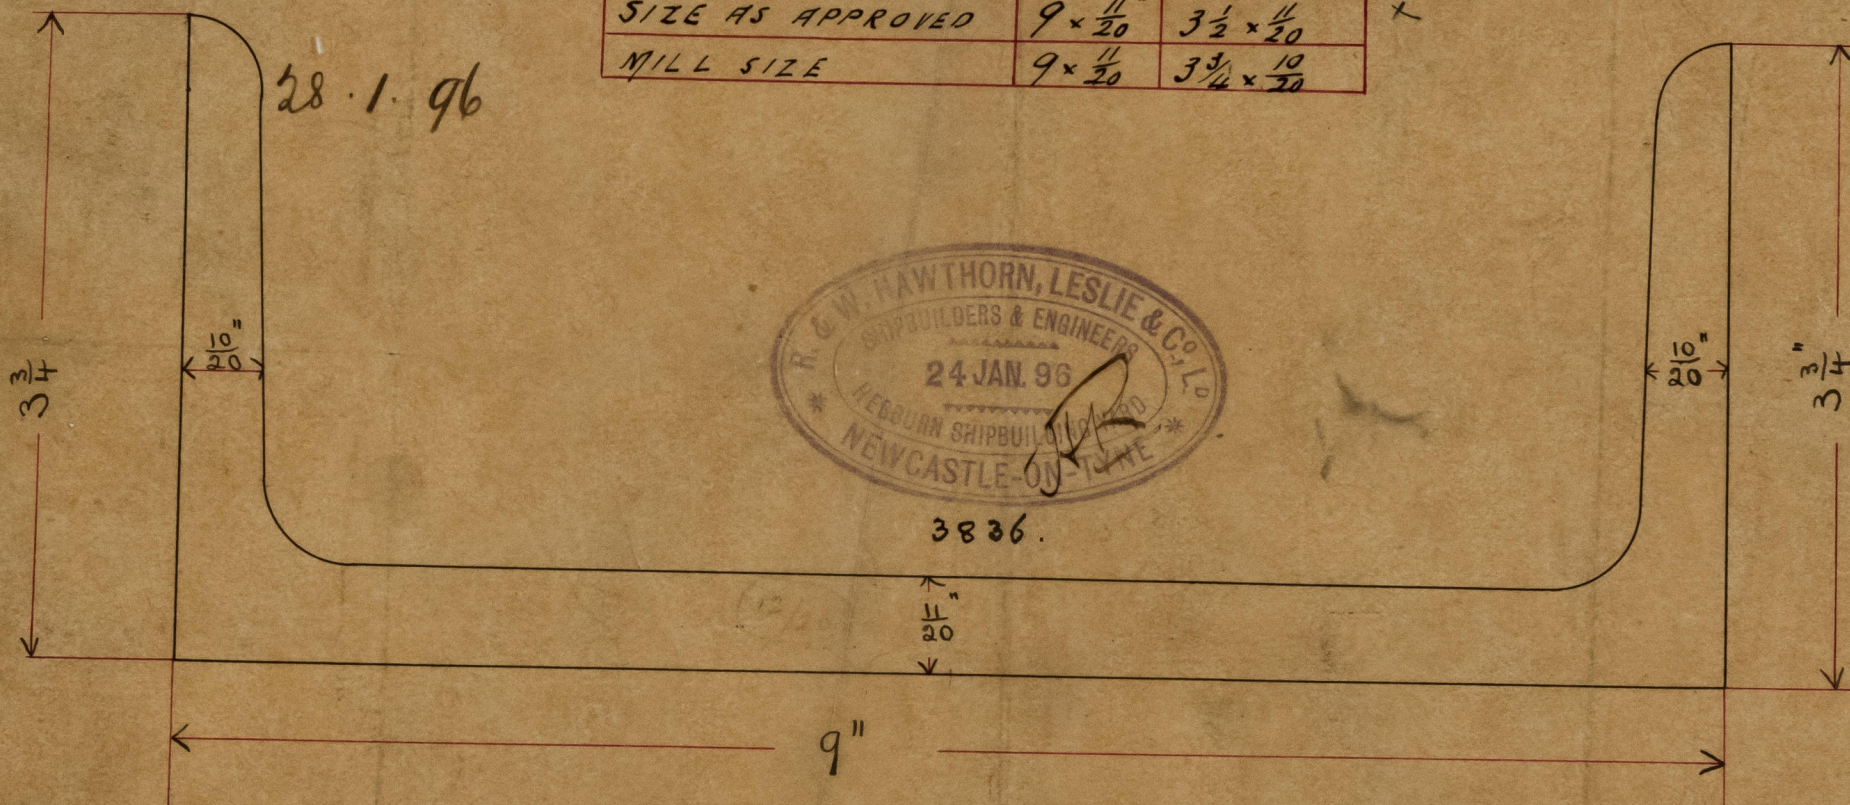 SIZE AS APPROVED 9 × 11/20 3 1/2 × 11/20 ×
MILL SIZE 9 × 11/20 3 3/4 × 10/20
28.1.96
R. & W. HAWTHORN, LESLIE & Co., LD
SHIPBUILDERS & ENGINEERS
24 JAN. 96
HEBBURN SHIPBUILDING YARD
NEWCASTLE-ON-TYNE
3 3/4
10/20"
10/20"
3 3/4"
3836.
11/20"
9"